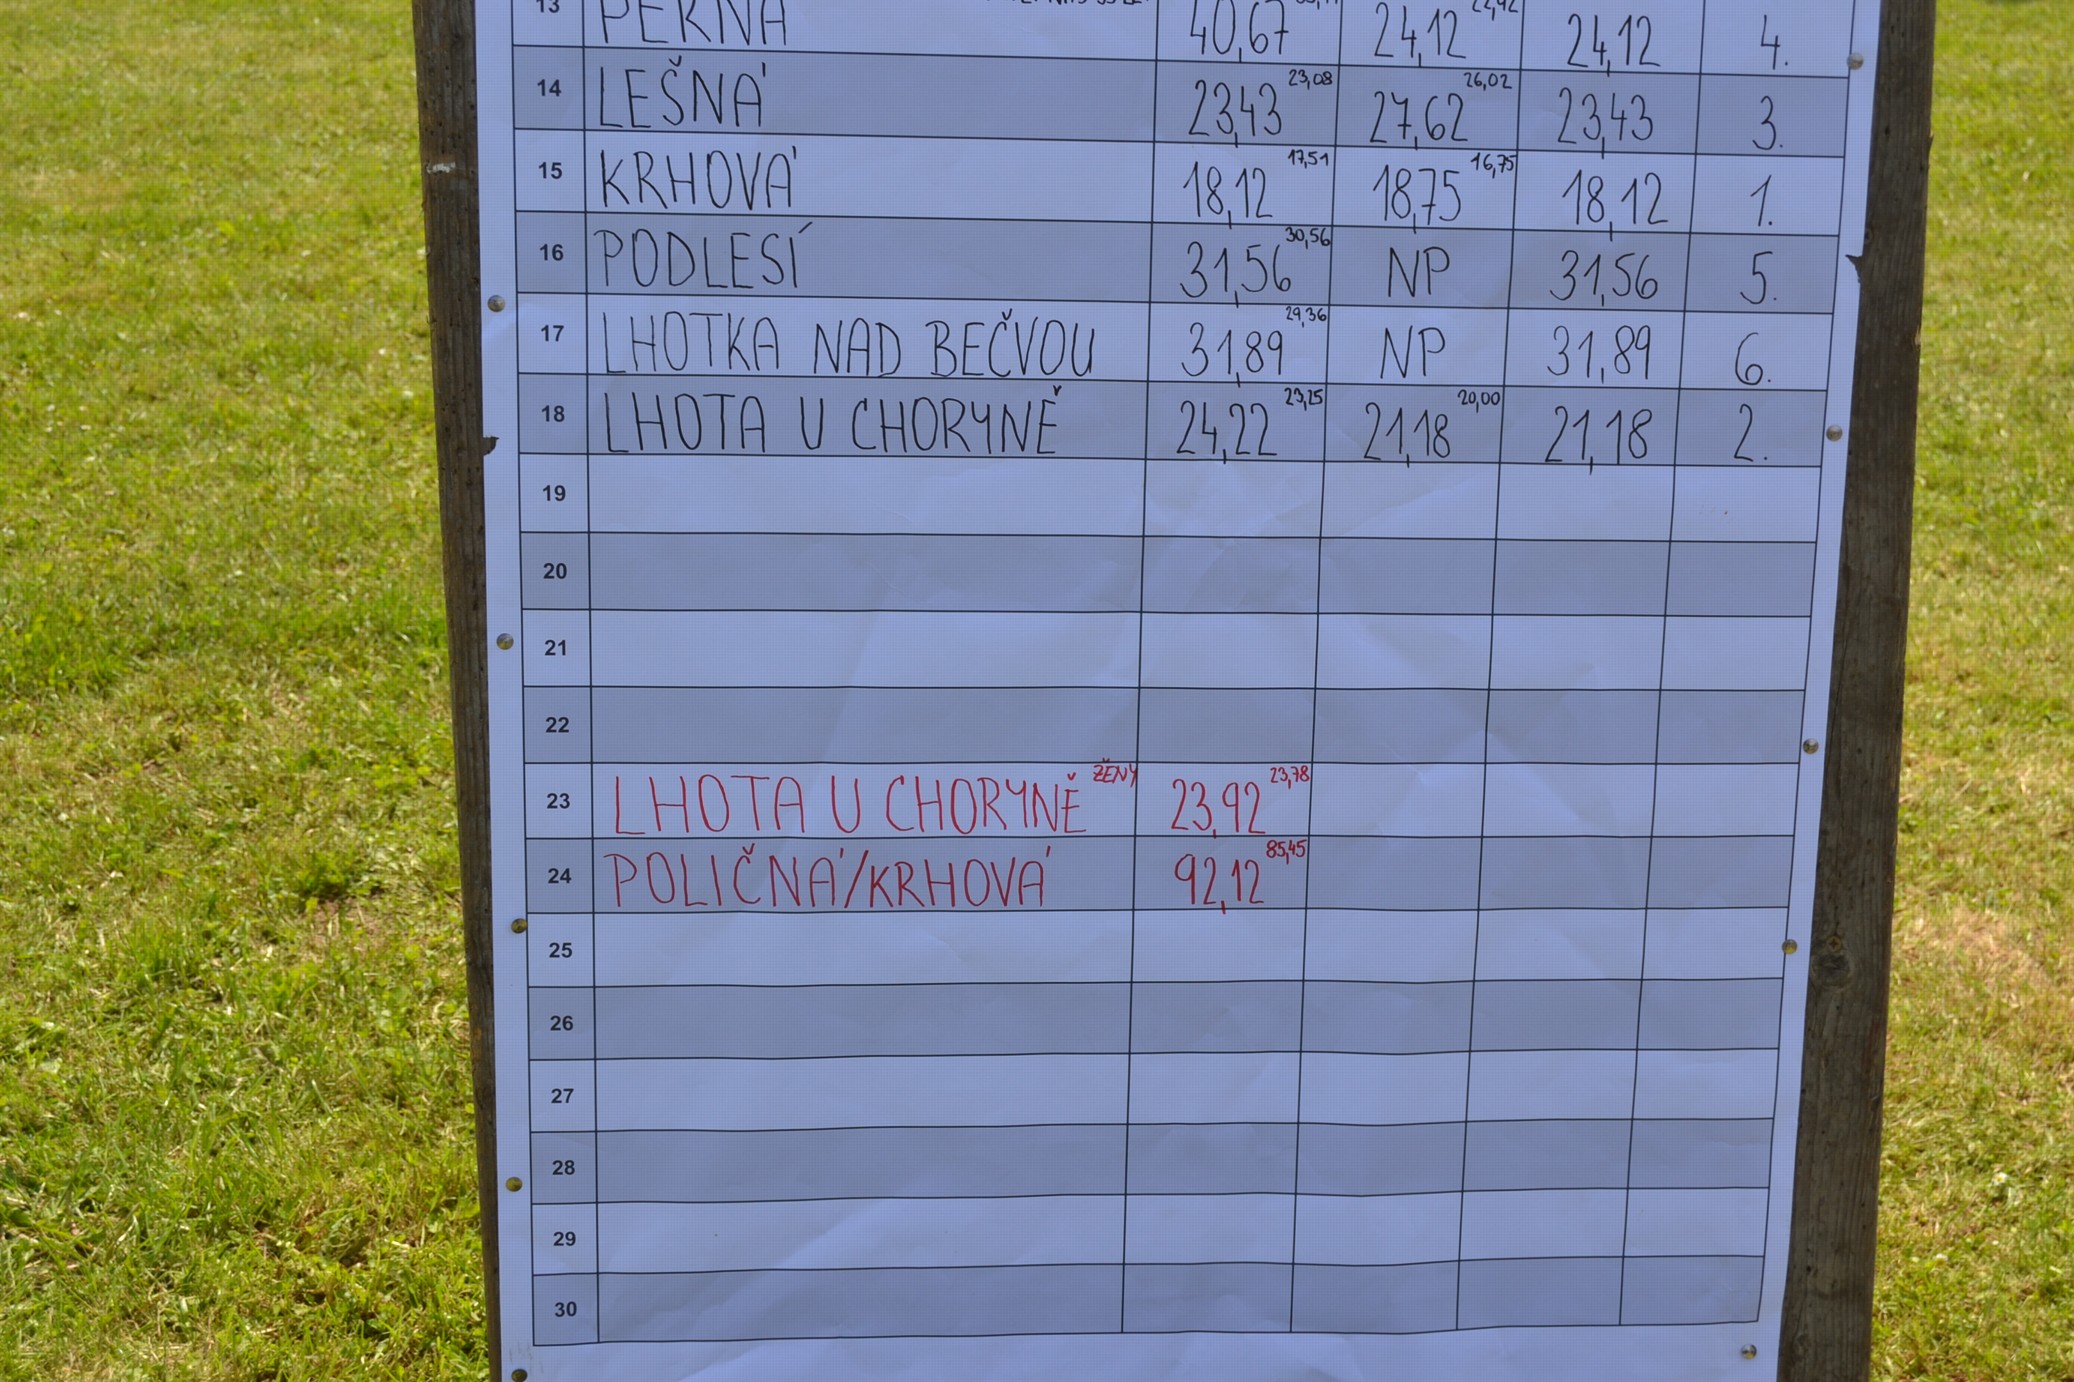 13 PERNÁ 40,67 24,12 24,12 4.
14 LEŠNÁ 23,43 23,08 27,62 26,02 23,43 3.
15 KRHOVÁ 18,12 17,51 18,75 16,75 18,12 1.
16 PODLESÍ 31,56 30,56 NP 31,56 5.
17 LHOTKA NAD BEČVOU 31,89 29,36 NP 31,89 6.
18 LHOTA U CHORYNĚ 24,22 23,25 21,18 20,00 21,18 2.
19
20
21
22
23 LHOTA U CHORYNĚ ŽENY 23,92 23,78
24 POLIČNÁ/KRHOVÁ 92,12 85,45
25
26
27
28
29
30